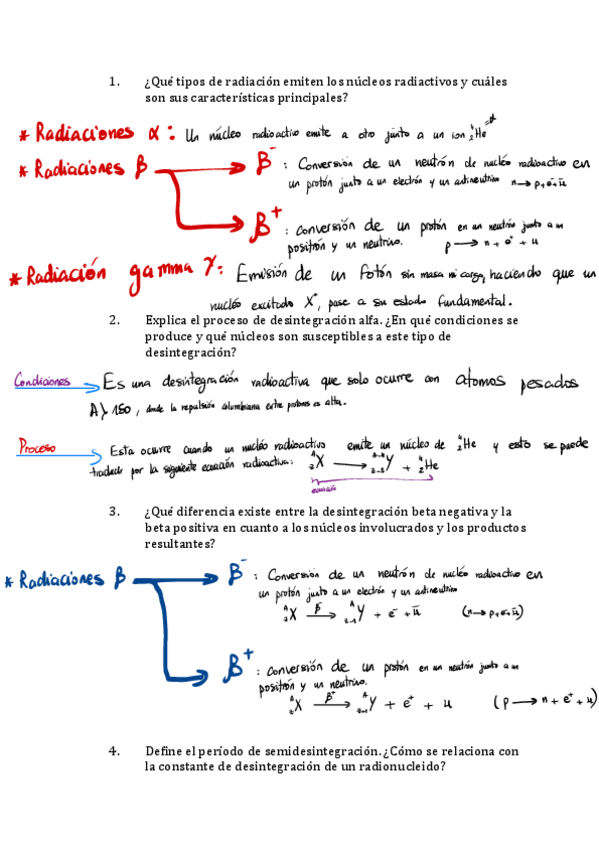 1. ¿Qué tipos de radiación emiten los núcleos radiactivos y cuáles
son sus características principales?
* Radiaciones α: Un núcleo radioactivo emite a otro junto a un ion ⁴₂He
* Radiaciones β → β⁻: Conversión de un neutrón de nucléo radioactivo en
un protón junto a un electrón y un antineutrino n → p + e⁻ + ū
β⁺: Conversión de un protón en un neutrón junto a un
positrón y un neutrino. p → n + e⁺ + u
* Radiación gamma γ: Emisión de un Fotón sin masa ni carga, haciendo que un
nucléo excitado X*, pase a su estado fundamental.
2. Explica el proceso de desintegración alfa. ¿En qué condiciones se
produce y qué núcleos son susceptibles a este tipo de
desintegración?
Condiciones → Es una desintegración radioactiva que solo ocurre con atomos pesados
A > 150, donde la repulsión columbiana entre protones es alta.
Proceso → Esta ocurre cuando un nucléo radioactivo emite un núcleo de ⁴₂He y esto se puede
traducir por la siguiente ecuación radioactiva: X → Y + ⁴₂He
ecuación
3. ¿Qué diferencia existe entre la desintegración beta negativa y la
beta positiva en cuanto a los núcleos involucrados y los productos
resultantes?
* Radiaciones β → β⁻: Conversión de un neutrón de nucléo radioactivo en
un protón junto a un electrón y un antineutrino
X → Y + e⁻ + ū (n → p + e⁻ + ū)
β⁺: Conversión de un protón en un neutrón junto a un
positrón y un neutrino.
X → Y + e⁺ + u (p → n + e⁺ + u)
4. Define el período de semidesintegración. ¿Cómo se relaciona con
la constante de desintegración de un radionucleido?